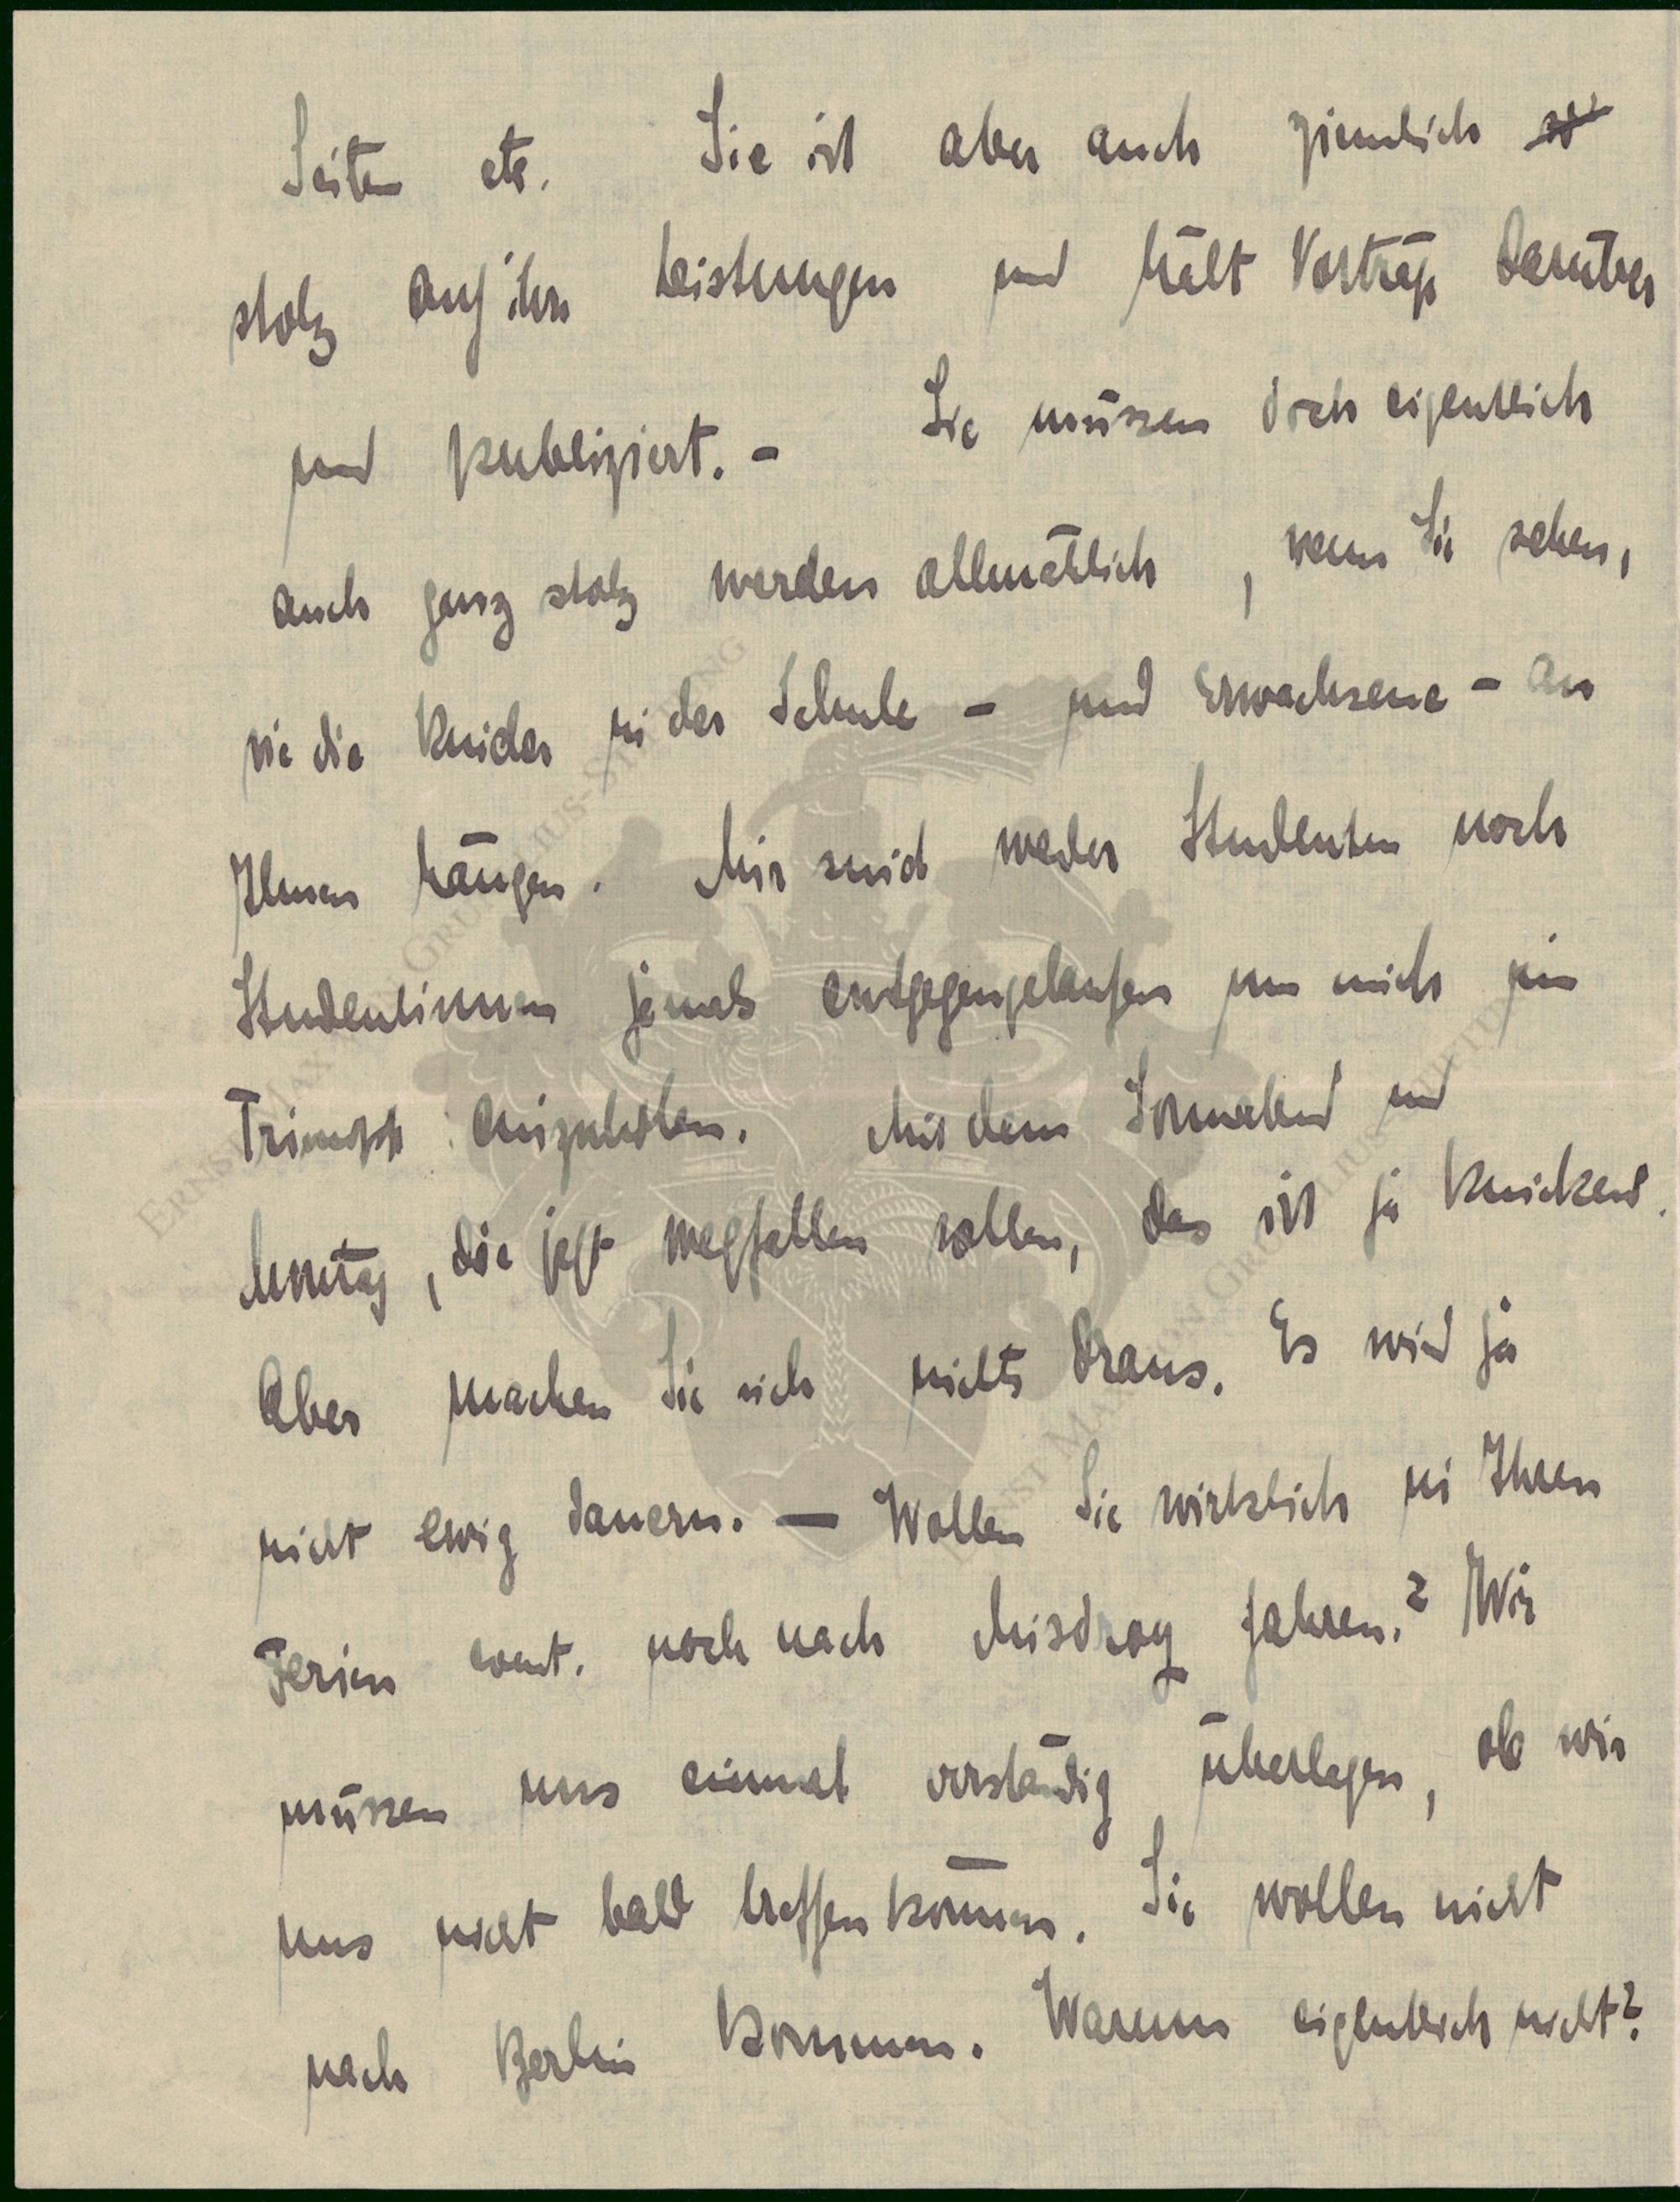 Seiten etc. Sie ist aber auch ziemlich
stolz auf ihre Leistungen und hält Vorträge darüber
und publiziert. - Sie müssen doch eigentlich
auch ganz stolz werden allmählich, wenn Sie sehen,
wie die Kinder in der Schule - und Erwachsene - an
Ihnen hängen. Mir sind weder Studenten noch
Studentinnen jemals entgegengelaufen um mich im
Triumph einzuholen. Mit dem Sonnabend und
Montag, die jetzt wegfallen sollen, das ist ja knickend.
Aber machen Sie sich nichts draus. Es wird ja
nicht ewig dauern. — Wollen Sie wirklich in Ihren
Ferien event. noch nach Misdroy fahren? Wir
müssen uns einmal verständig überlegen, ob wir
uns nicht bald treffen können. Sie wollen nicht
nach Berlin kommen. Warum eigentlich nicht?
ERNST MAX VON GRUNELIUS-STIFTUNG
ERNST MAX VON GRUNELIUS-STIFTUNG